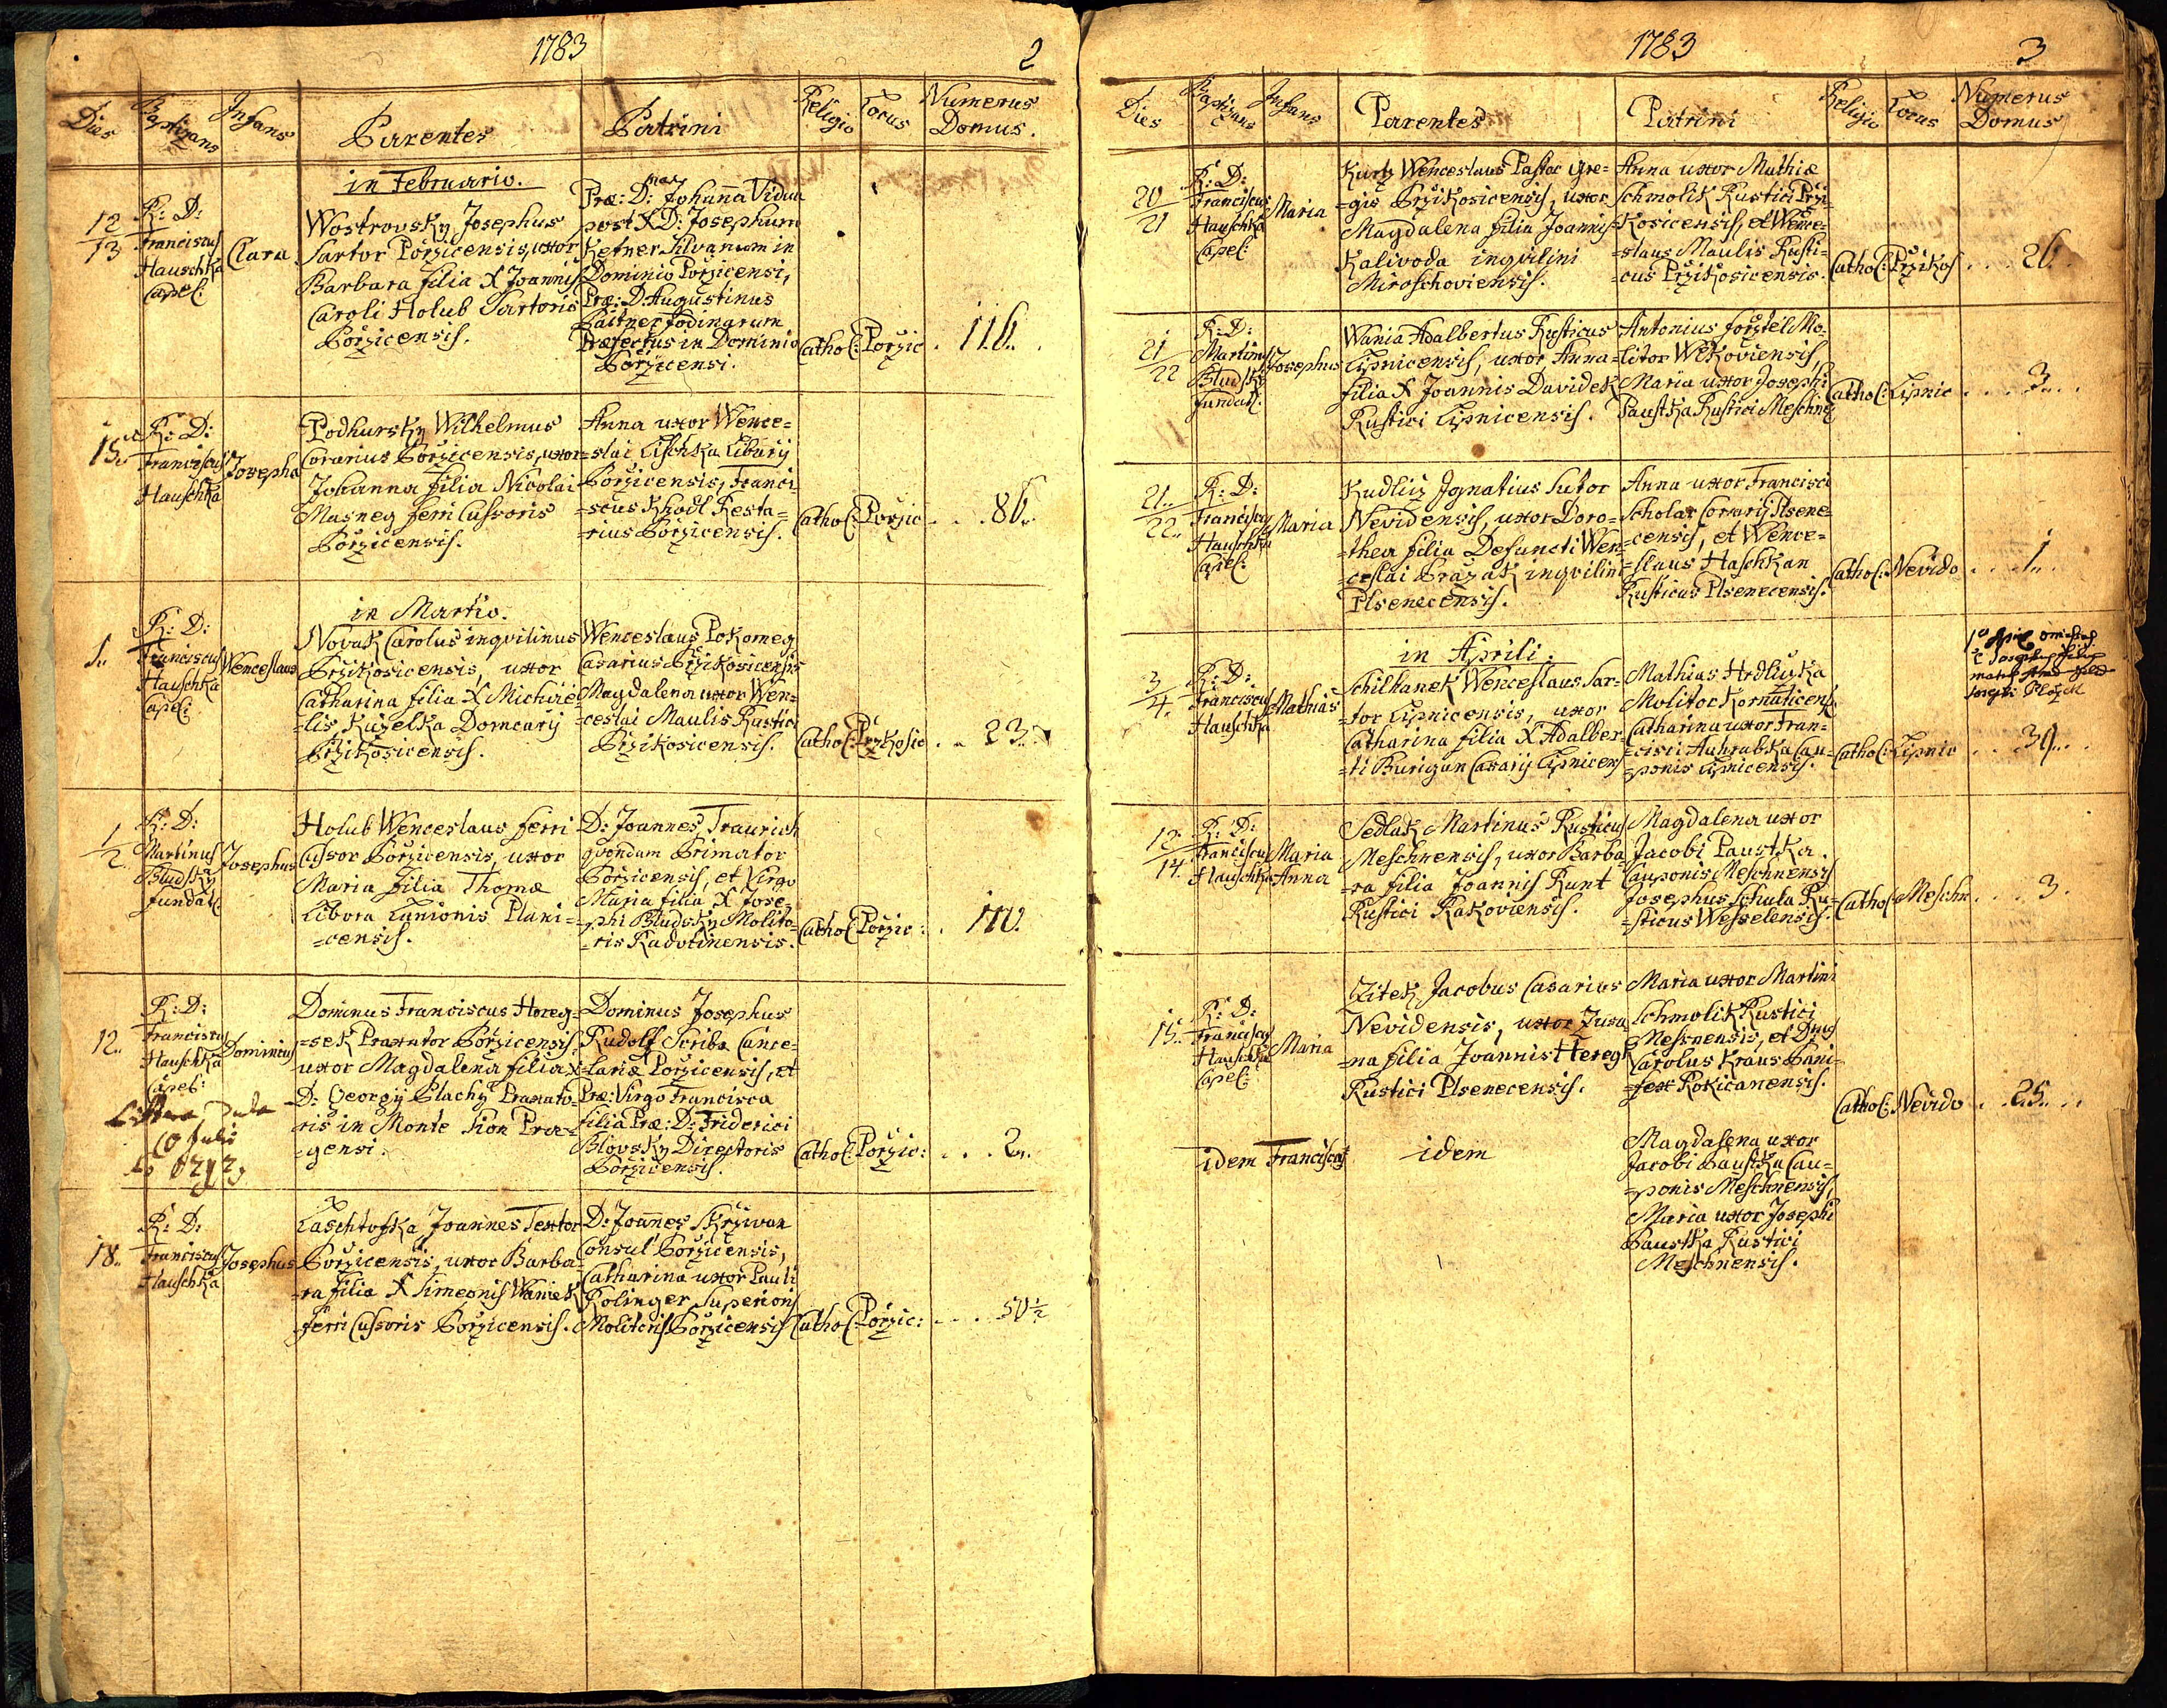 1783
2
Dies Baptizans Infans Parentes Patrini Religio Locus Numerus Domus.
in Februario.
12/13
R: D:
Franciscus
Hauschka
Capel:
Clara
Wostrovsky Josephus
Sartor Poržicensis, uxor
Barbara filia X Joannis
Caroli Holub Sartoris
Poržicensis.
Præ: D:na Johanna Vidua
post X D: Josephum
Kefner Silvanum in
Dominio Poržicensi,
Præ: D. Augustinus
Paitner fodinarum
Præfectus in Dominio
Poržicensi.
Cathol: Poržic . 116. .
15.
R: D:
Franciscus
Hauschka
Josepha
Podhursky Wilhelmus
Corarius Poržicensis, uxor
Johanna filia Nicolai
Masneg ferri Cussoris
Poržicensis.
Anna uxor Wence=
=slai Lischka Libarij
Poržicensis, Franci=
=scus Khodl Resta=
=rius Poržicensis.
Cathol: Poržic . . . 86.
in Martio.
1..
R: D:
Franciscus
Hauschka
Capel:
Wenceslaus
Novak Carolus inqvilinus
Pržikosicensis, uxor
Catharina filia X Michae=
=lis Kuželka Domcarij
Pržikosicensis.
Wenceslaus Pokorneg
Casarius Pržikosicensis
Magdalena uxor Wen=
=ceslai Maulis Rustici
Pržikosicensis.
Cathol: Pržkosic . . 23..
1/2.
R: D:
Martinus
Bludsky
fundat:
Josephus
Holub Wenceslaus ferri
Cussor Poržicensis, uxor
Maria filia Thomæ
Libora Lanionis Plani=
=censis.
D: Joannes Traurich
qvondam Primator
Poržicensis, et Virgo
Maria filia X Jose=
=phi Bludsky Molito=
=ris Radotinensis.
Cathol: Poržic: . 110.
12..
R: D:
Franciscus
Hauschka
Capel:
Dominicus
10 Julii
Dominus Franciscus Horeg=
=sek Praxator Poržicensis,
uxor Magdalena filia X
D: Georgij Plachy Praxato=
ris in Monte Sion Præ=
=gensi.
Dominus Josephus
Rudolf Scriba Cance=
=lariæ Poržicensis, et
Præ: Virgo Francisca
filia Præ: D: Friderici
Blovsky Directoris
Poržicensis.
Cathol: Poržic: . . . 2..
18..
R: D:
Franciscus
Hauschka
Josephus
Laschtofka Joannes Textor
Poržicensis, uxor Barba=
=ra filia X Simeonis Waniek
ferri Cussoris Poržicensis.
D: Joannes Skržiwan
Consul Poržicensis,
Catharina uxor Pauli
Rolinger Superioris
Molitoris Poržicensis
Cathol: Poržic: . . . 50 1/2
1783
3
Dies Baptizans Infans Parentes Patrini Religio Locus Numerus Domus
20/21
R: D:
Franciscus
Hauschka
Capel:
Maria
Kurtz Wenceslaus Pastor Gre=
=gis Pržikosicensis, uxor
Magdalena filia Joannis
Kalivoda inqvilini
Miroschoviensis.
Anna uxor Mathiæ
Schmolik Rustici Prži=
Kosicensis, et Wence=
=slaus Maulis Rusti=
=cus Pržikosicensis.
Cathol: Pržikos . . . 26.
21/22
R: D:
Martinus
Bludsky
fundat:
Josephus
Wania Adalbertus Rusticus
Lipnicensis, uxor Anna
filia X Joannis Davidek
Rustici Lipnicensis.
Antonius foržtel Mo=
=litor Wekoviensis,
Maria uxor Josephi
Paustka Rustici Meschne
Cathol: Lipnic . . . . 3. . .
21../22..
R: D:
Franciscus
Hauschka
Capel:
Maria
Kudliž Ignatius Sutor
Nevidensis, uxor Doro=
=thea filia Defuncti Wen=
=ceslai Pražak inqvilini
Plsenecensis.
Anna uxor Francisci
Scholar Corarij Plsene=
=censis, et Wence=
=slaus Haschkan
Rusticus Plsenecensis.
Cathol: Nevido . . . 1. .
in Aprili.
3/4.
R: D:
Franciscus
Hauschka
Mathias
Schilhanek Wenceslaus Sar=
=tor Lipnicensis, uxor
Catharina filia X Adalber=
=ti Burigan Casarij Lipnicens
Mathias Hrdliczka
Molitor Kornaticens
Catharina uxor Fran=
=cisci Auhrabka Cau=
=ponis Lipnicensis.
Cathol: Lipnic . . . 39. . .
12./14.
R: D:
Franciscus
Hauschka
Maria
Anna
Sedlak Martinus Rusticus
Meschnensis, uxor Barba=
=ra filia Joannis Runt
Rustici Rakoviensis.
Magdalena uxor
Jacobi Paustka
Cauponis Meschnensis
Josephus Schula Ru=
=sticus Wesselensis.
Cathol: Meschn . . . . 3.
15..
R: D:
Franciscus
Hauschka
Capel:
Maria
Zitek Jacobus Casarius
Nevidensis, uxor Zusa=
=na filia Joannis Hereg
Rustici Plsenecensis.
Maria uxor Martini
Schmolik Rustici
Mesnensis, et Dnus
Carolus Kraus Pani=
=fex Rokicanensis.
Cathol: Nevido . . 25. . .
idem
Francisca
idem
Magdalena uxor
Jacobi Paustka Cau=
=ponis Meschnensis,
Maria uxor Josephi
Paustka Rustici
Meschnensis.